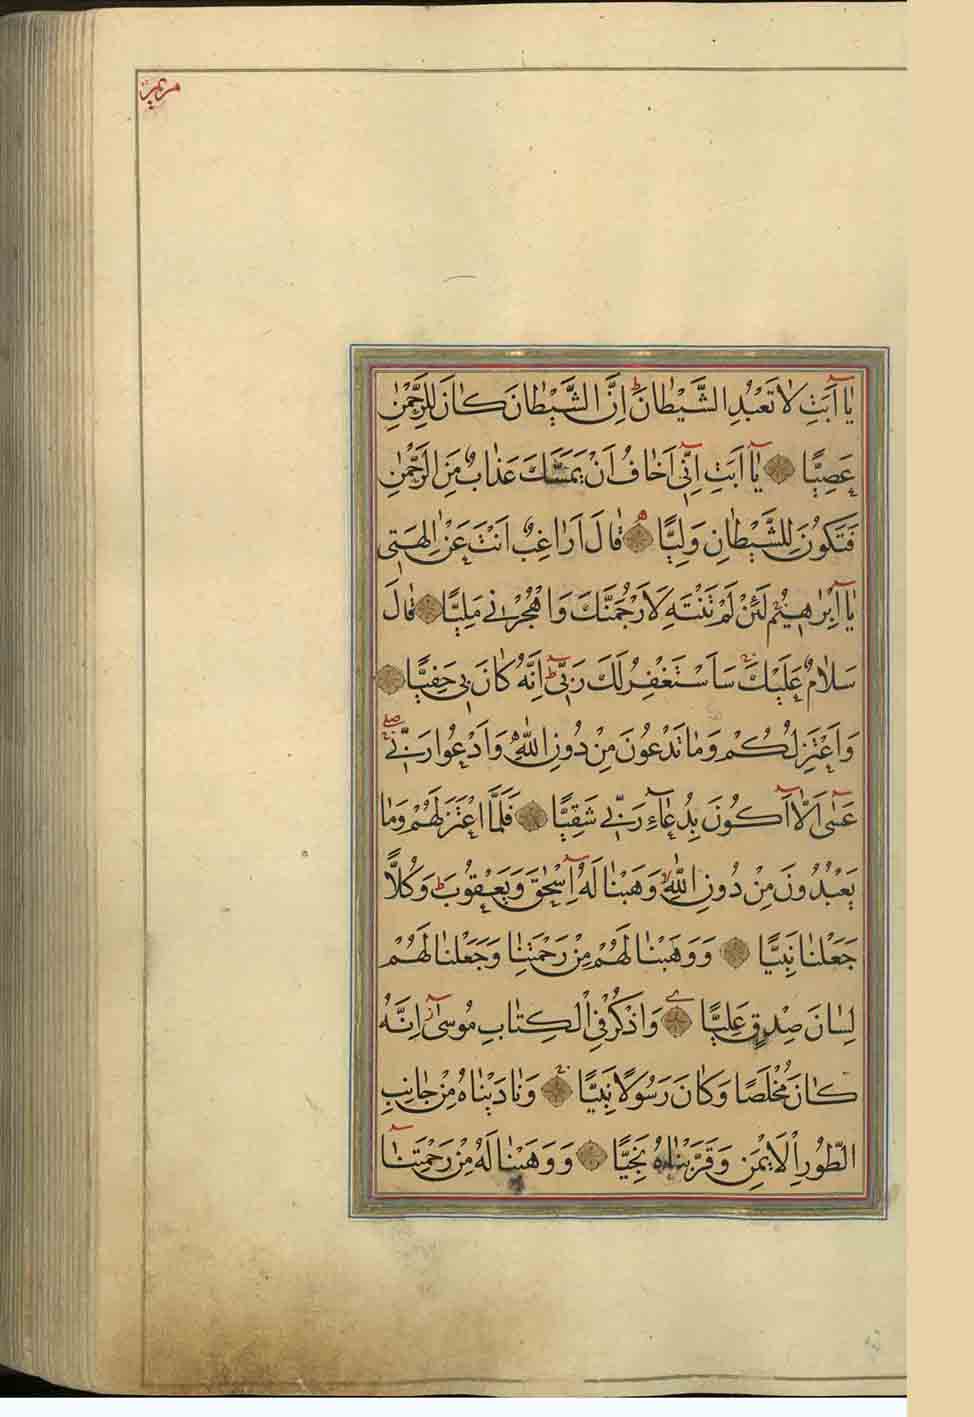 مريم
يَا أَبَتِ لَا تَعْبُدِ الشَّيْطَانَ ط اِنَّ الشَّيْطَانَ كَانَ لِلرَّحْمٰنِ
عَصِيًّا يَا أَبَتِ اِنِّي اَخَافُ اَنْ يَمَسَّكَ عَذَابٌ مِنَ الرَّحْمٰنِ
فَتَكُونَ لِلشَّيْطَانِ وَلِيًّا قَالَ اَرَاغِبٌ اَنْتَ عَنْ اٰلِهَتِي
يَا اِبْرٰهِيمُ لَئِنْ لَمْ تَنْتَهِ لَاَرْجُمَنَّكَ وَاهْجُرْنِي مَلِيًّا قَالَ
سَلَامٌ عَلَيْكَ سَاَسْتَغْفِرُ لَكَ رَبِّي ط اِنَّهُ كَانَ بِي حَفِيًّا
وَاَعْتَزِلُكُمْ وَمَا تَدْعُونَ مِنْ دُونِ اللّٰهِ وَاَدْعُوا رَبِّي صلے
عَسٰى اَلَّا اَكُونَ بِدُعَاءِ رَبِّي شَقِيًّا فَلَمَّا اعْتَزَلَهُمْ وَمَا
يَعْبُدُونَ مِنْ دُونِ اللّٰهِ لا وَهَبْنَا لَهُ اِسْحٰقَ وَيَعْقُوبَ ط وَكُلًّا
جَعَلْنَا نَبِيًّا وَوَهَبْنَا لَهُمْ مِنْ رَحْمَتِنَا وَجَعَلْنَا لَهُمْ
لِسَانَ صِدْقٍ عَلِيًّا وَاذْكُرْ فِي الْكِتَابِ مُوسٰى ز اِنَّهُ
كَانَ مُخْلَصًا وَكَانَ رَسُولًا نَبِيًّا وَنَادَيْنَاهُ مِنْ جَانِبِ
الطُّورِ الْاَيْمَنِ وَقَرَّبْنَاهُ نَجِيًّا وَوَهَبْنَا لَهُ مِنْ رَحْمَتِنَا